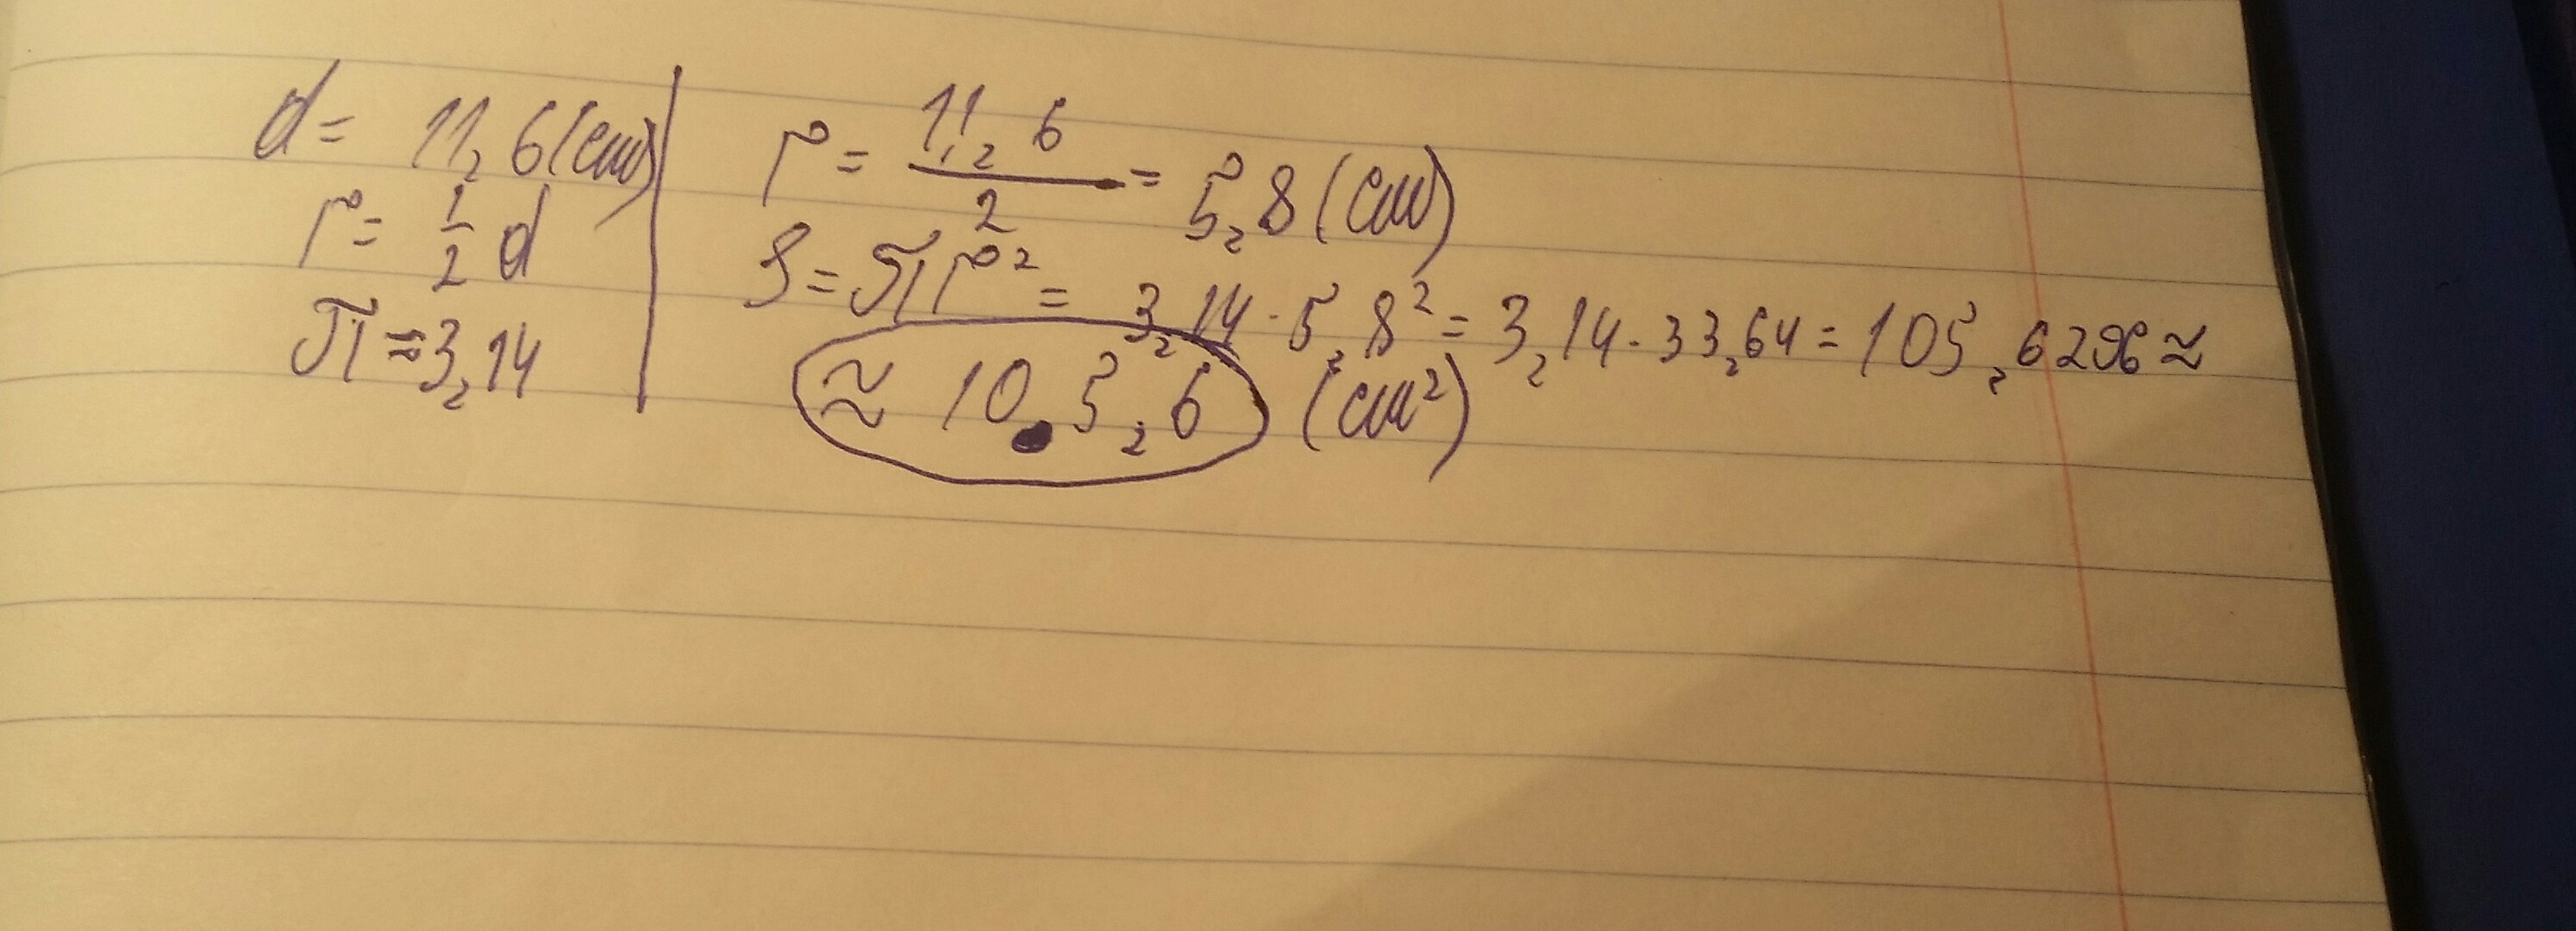 d = 11,6 (см)
r = 1/2 d
π ≈ 3,14
r = 11,6/2 = 5,8 (см)
S = πr² = 3,14 · 5,8² = 3,14 · 33,64 = 105,6296 ≈
≈ 105,6 (см²)